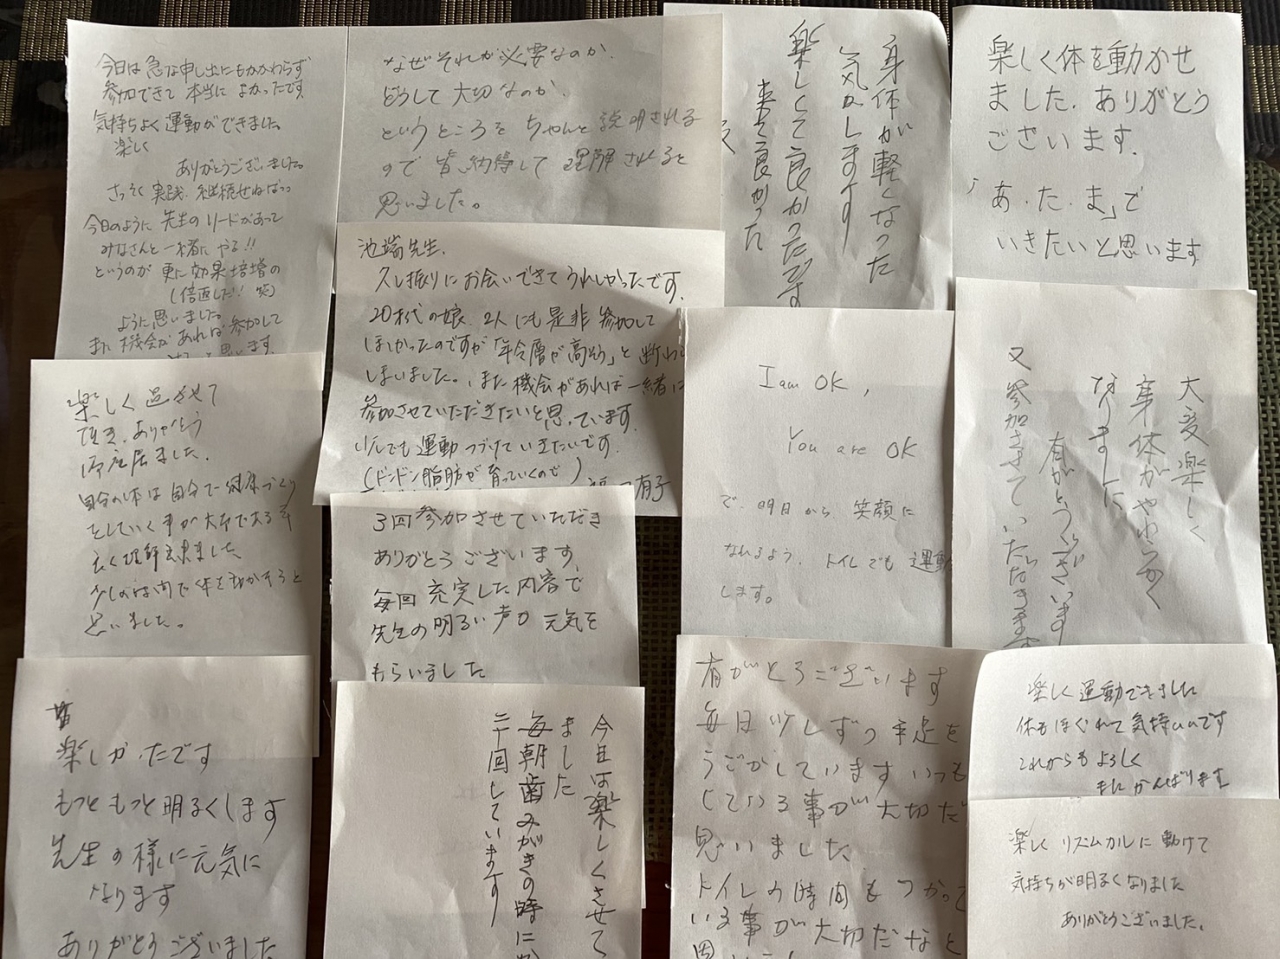 今日は急な申し出にもかかわらず
参加できて 本当に よかったです。
気持ちよく 運動ができました
楽しく
ありがとうございました。
さっそく 実践、継続せねばっっ
今日のように 先生のリードがあって
みなさんと 一緒に やる!!
というのが 更に効果倍増の
(倍返しだ!! 笑)
ように思いました。
また 機会があれば 参加して
なぜそれが必要なのか、
どうして 大切なのか、
というところを ちゃんと 説明される
ので 皆 納得して 理解されると
思いました。
身体が軽くなった
気がします
楽しくて良かったです
来て良かった
楽しく体を動かせ
ました。ありがとう
ございます。
「あ・た・ま」で
いきたいと思います
池端先生、
久し振りに お会いできて うれしかったです。
20才代の娘、2人にも 是非 参加して
ほしかったのですが「年令層が高そう」と 断わ
しまいました。また 機会があれば 一緒に
参加させていただきたいと思っています。
少しでも 運動 つづけていきたいです。
(ドンドン脂肪が 育っていくので)
有子
I am OK,
You are OK
で、明日から 笑顔に
なれるよう、トイレでも 運動
します。
大変楽しく
身体がやわらかく
なりました
有がとうございます
又参加させていただきます
楽しく過させて
頂き、ありがとう
御座居ました。
自分の体は自分で健康づくり
をしていく事が大切である事
少しの時間で体を動かそうと
思いました。
3回参加させていただき
ありがとうございます。
毎回 充実した内容で
先生の明るい声が 元気を
もらいました
楽しかったです
もっと もっと 明るくします
先生の様に元気に
なります
ありがとうございました
今日は楽しくさせて
ました
毎朝歯みがきの時に
二十回しています
有がとうございます
毎日少しずつ手足を
うごかしています いつも
している事が大切だ
思いました
トイレの時間もつかって
いる事が大切だなと
楽しく 運動できました
体もほぐれて気持いいです
これからも よろしく
またがんばります
楽しく リズムカルに 動けて
気持ちが明るくなりました
ありがとうございました。